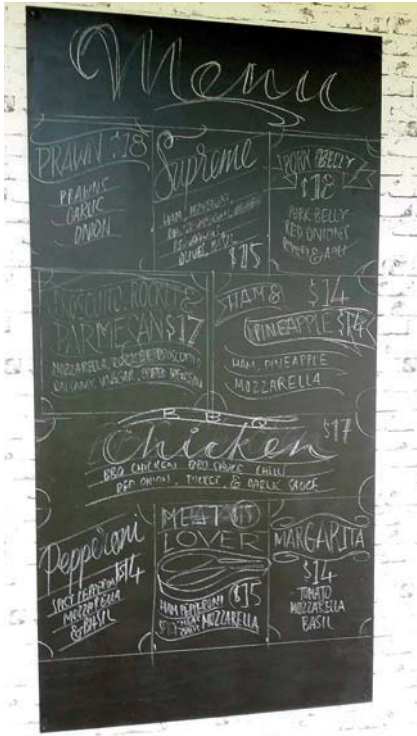 Menu
PRAWN $18
PRAWNS
GARLIC
ONION
Supreme
HAM, PEPPERONI,
OLIVES,
$15
PORK BELLY
$18
PORK BELLY
RED ONIONS
& APPLE
PROSCIUTTO, ROCKET &
PARMESAN $17
MOZZARELLA, ROCKET, PROSCIUTTO
BALSAMIC VINEGAR, PARMESAN
HAM & $14
PINEAPPLE $14
HAM, PINEAPPLE
MOZZARELLA
BBQ
Chicken $17
BBQ CHICKEN BBQ SAUCE CHILLI
RED ONION, ROCKET, & GARLIC SAUCE
Pepperoni
$14
SPICY PEPPERONI
MOZZARELLA
& BASIL
MEAT
LOVER
$15
HAM, PEPPERONI
MOZZARELLA
MARGARITA
$14
TOMATO
MOZZARELLA
BASIL